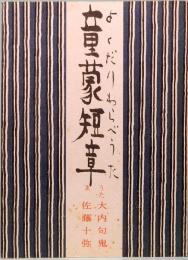 よくだりわらべうた
童蒙短章
うた 大内句鬼
佐藤十弥